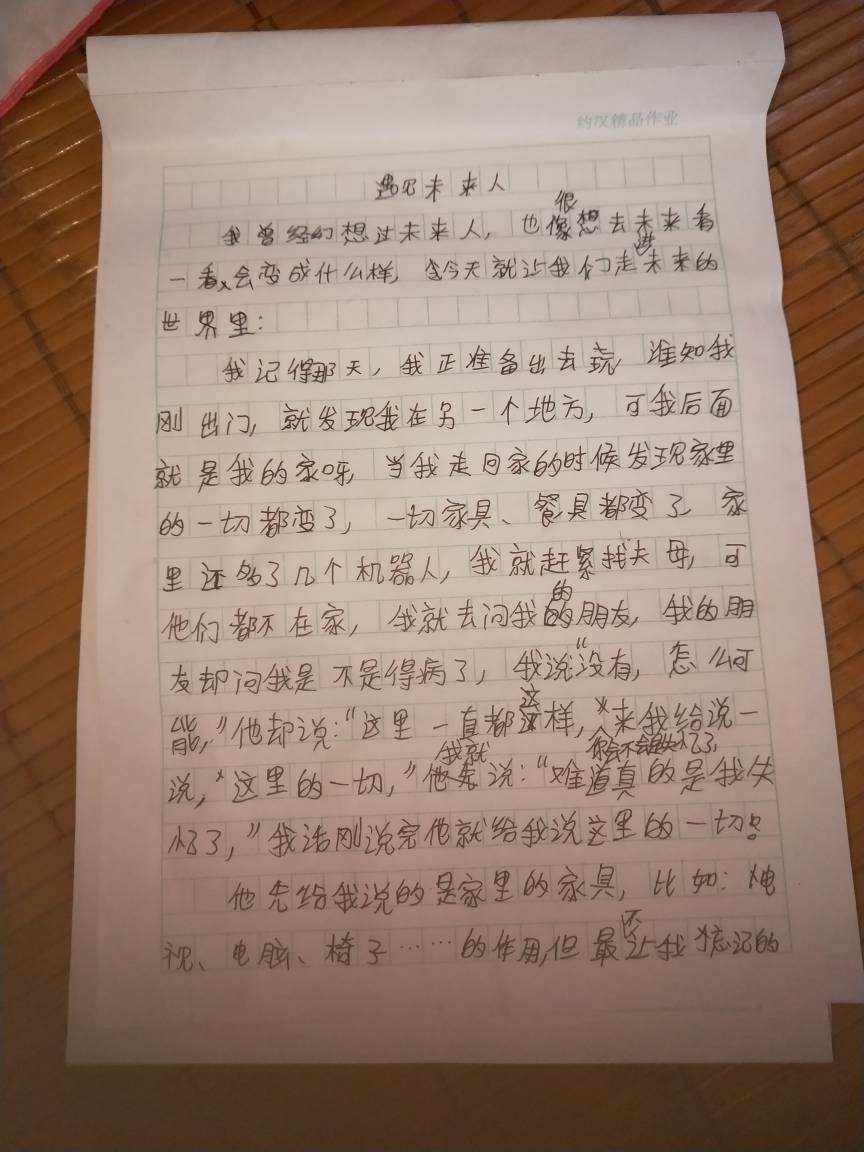 约汉精品作业
遇见未来人
我曾经幻想过未来人，也很想去未来看
一看会变成什么样，今天就让我们走进未来的
世界里：
我记得那天，我正准备出去玩，谁知我
刚出门，就发现我在另一个地方，可我后面
就是我的家呀，当我走回家的时候发现家里
的一切都变了，一切家具、餐具都变了，家
里还多了几个机器人，我就赶紧找父母，可
他们都不在家，我就去问我的朋友，我的朋
友却问我是不是得病了，我说“没有，怎么可
能，”他却说：“这里一直都这样，来我给说一
说，这里的一切，”我就说：“难道真的是我失
忆了，”我话刚说完他就给我说这里的一切。
他先给我说的是家里的家具，比如：电
视、电脑、椅子……的作用，但最让我不忘记的